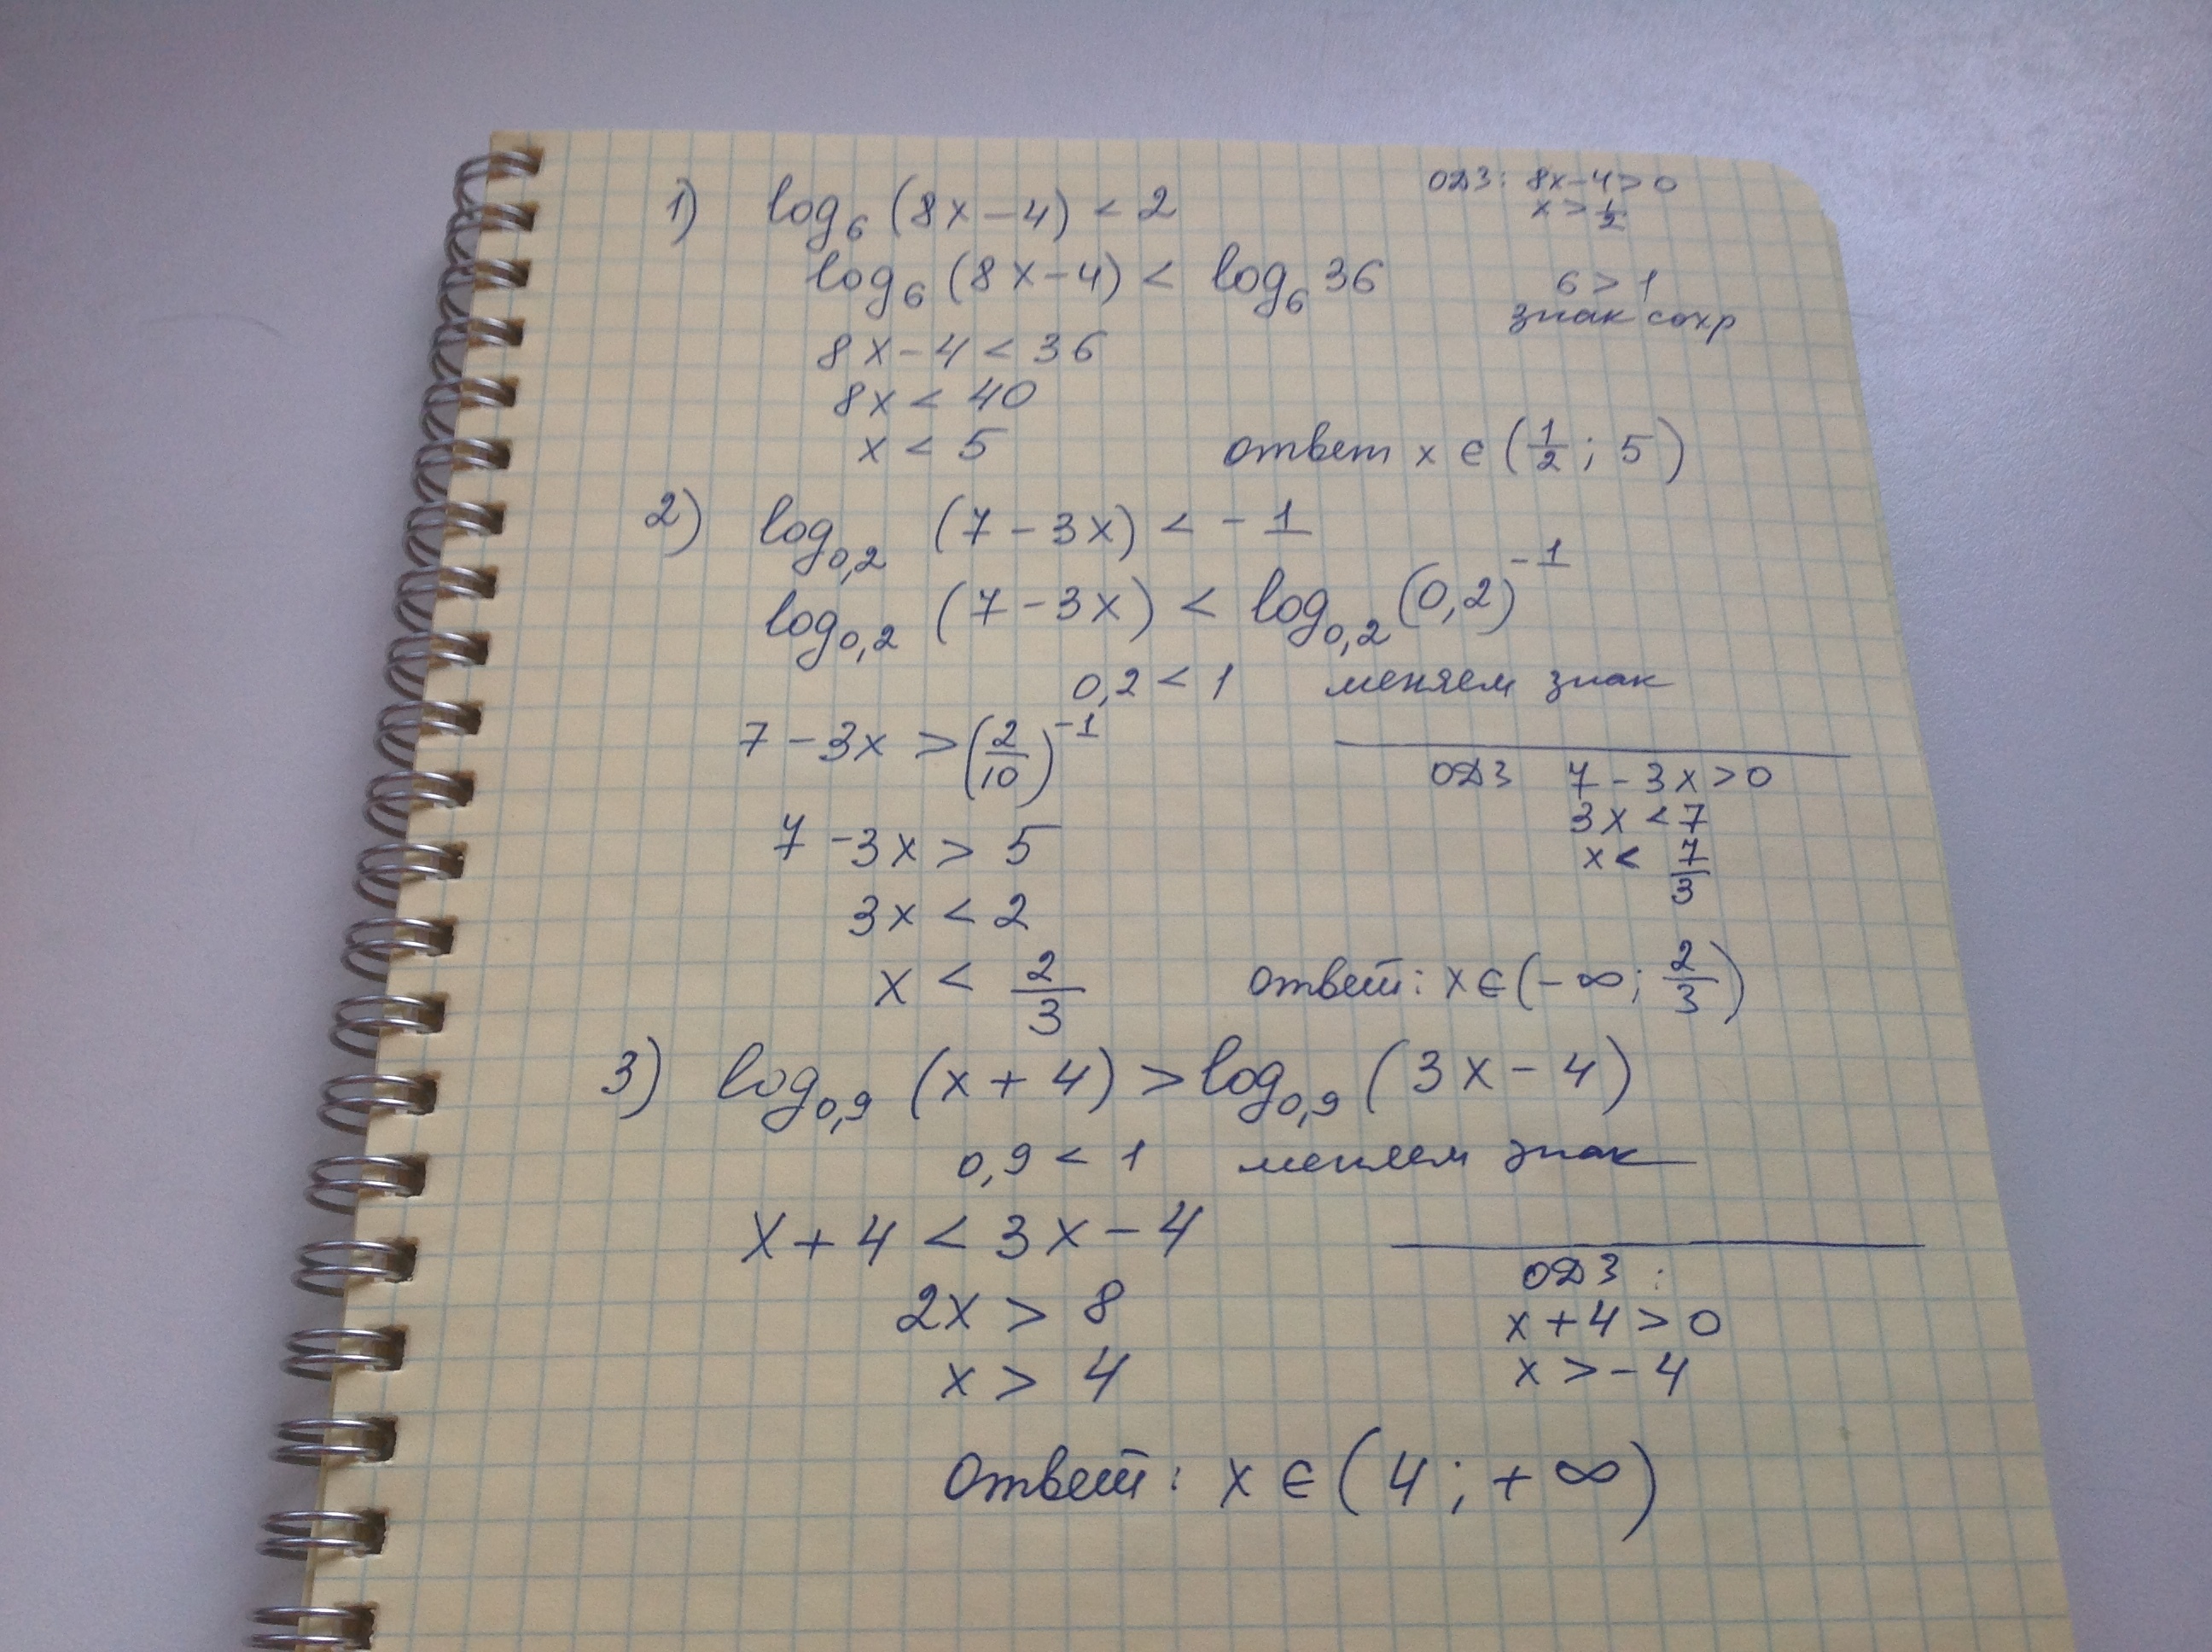 1) log₆ (8x-4) < 2
ОДЗ: 8x-4>0
x > 1/2
log₆ (8x-4) < log₆ 36
6 > 1
знак сохр
8x-4 < 36
8x < 40
x < 5
ответ x ∈ (1/2 ; 5)
2) log₀,₂ (7-3x) < -1
log₀,₂ (7-3x) < log₀,₂ (0,2)⁻¹
0,2 < 1 меняем знак
7-3x > (2/10)⁻¹
ОДЗ 7-3x>0
3x < 7
x < 7/3
7-3x > 5
3x < 2
x < 2/3
ответ: x ∈ (-∞; 2/3)
3) log₀,₉ (x+4) > log₀,₉ (3x-4)
0,9 < 1 меняем знак
x+4 < 3x-4
2x > 8
x > 4
ОДЗ :
x+4 > 0
x > -4
Ответ: x ∈ (4 ; +∞)